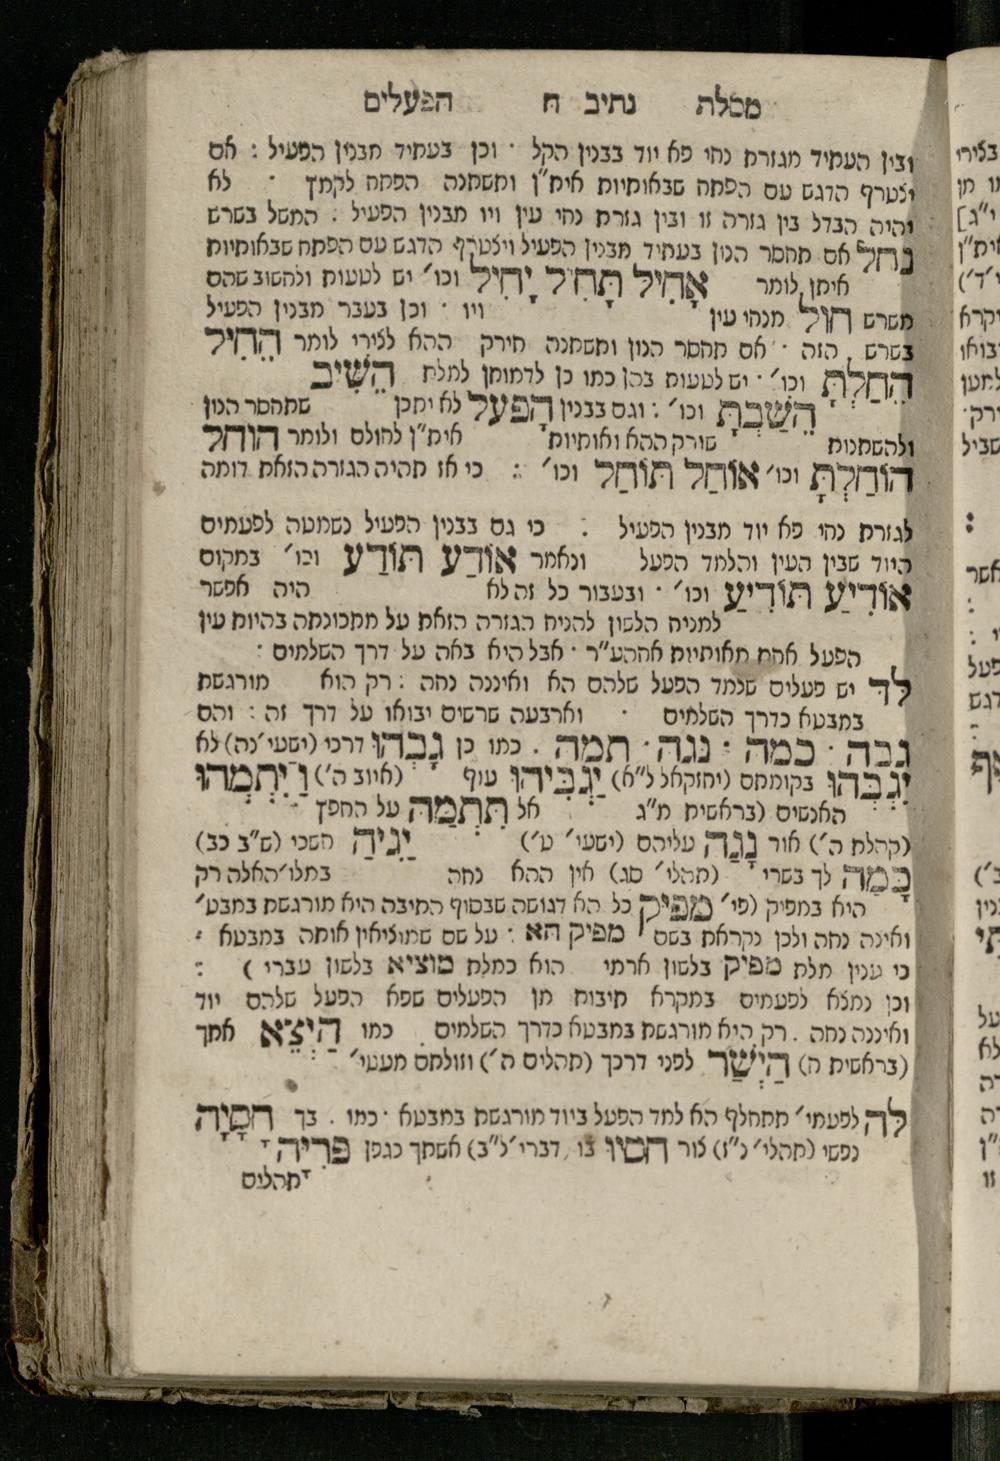 מסלת נתיב ח הפעלים
ובין העתיד מגזרת נחי פא יוד בבנין הקל · וכן בעתיד מבנין הפעיל : אם
יצטרף הדגש עם הפתח שבאותיות אית"ן ותשתנה הפתח לקמץ · לא
יהיה הבדל בין גזרה זו ובין גזרת נחי עין ויו מבנין הפעיל . המשל בשרש
נחל אם תחסר הנון בעתיד מבנין הפעיל ויצטרף הדגש עם הפתח שבאותיות
איתן לומר אָחִיל תָּחִיל יָחִיל וכו' יש לטעות ולחשוב שהם
משרש חול מנחי עין ויו · וכן בעבר מבנין הפעיל
בשרש הזה · אם תחסר הנון ותשתנה חירק ההא לצירי לומר הֵחִיל
הֵחַלְתָּ וכו' · יש לטעות בהן כמו כן לדמותן למלת הֵשִׁיב
הֵשַׁבְתָּ וכו' : וגם בבנין הָפעל לא יתכן שתחסר הנון
ולהשתנות שורק ההא ואותיות אית"ן לחולם ולומר הוחל
הוֹחַלְתָּ וכו' אוֹחַל תּוֹחַל וכו' : כי אז תהיה הגזרה הזאת דומה
לגזרת נחי פא יוד מבנין הפעיל : כי גם בבנין הפעיל נשמטה לפעמים
היוד שבין העין והלמד הפעל ונאמר אוֹדַע תּוֹדַע וכו' במקום
אוֹדִיעַ תּוֹדִיעַ וכו' · ובעבור כל זה לא היה אפשר
למניח הלשון להניח הגזרה הזאת על מתכונתה בהיות עין
הפעל אחת מאותיות אחהע"ר · אבל היא באה על דרך השלמים :
לד יש פעלים שלמד הפעל שלהם הא ואיננה נחה : רק הוא מורגשת
במבטא כדרך השלמים · וארבעה שרשים יבואו על דרך זה : והם
גבה · כמה · נגה · תמה . כמו כן גָבְהוּ דרכי (ישעי' נה) לא
יִגְבְּהוּ בקומתם (יחזקאל ל"א) יַגְבִּיהוּ עוף (איוב ה') וַיִּתְמְהוּ
האנשים (בראשית מ"ג אל תִּתְמַהּ על החפץ
(קהלת ה') אור נָגַהּ עליהם (ישעי' ט') יַגִּיהַּ חשכי (ש"ב כב)
כָּמַהּ לך בשרי (תהלי' סג) אין ההא נחה בתלו' האלה רק
היא במפיק (פי' מפיק כל הא דגושה שבסוף התיבה היא מורגשת במבט'
ואינה נחה ולכן נקראת בשם מפיק הא : על שם שמוציאין אותה במבטא ·
כי ענין מלת מפיק בלשון ארמי הוא כמלת מוציא בלשון עברי ) :
וכן נמצא לפעמים במקרא תיבות מן הפעלים שפא הפעל שלהם יוד
ואיננה נחה . רק היא מורגשת במבטא כדרך השלמים . כמו הַיְצֵא אתך
(בראשית ח) הַיְשַׁר לפני דרכך (תהלים ה') וזולתם מעטי'
לה לפעמי' תתחלף הא למד הפעל ביוד מורגשת במבטא · כמו . בך חָסָיָה
נפשי (תהלי' נ"ז) צור חסיו בו (דברי' ל"ב) אשתך כגפן פֹּרִיָּה
תהלים